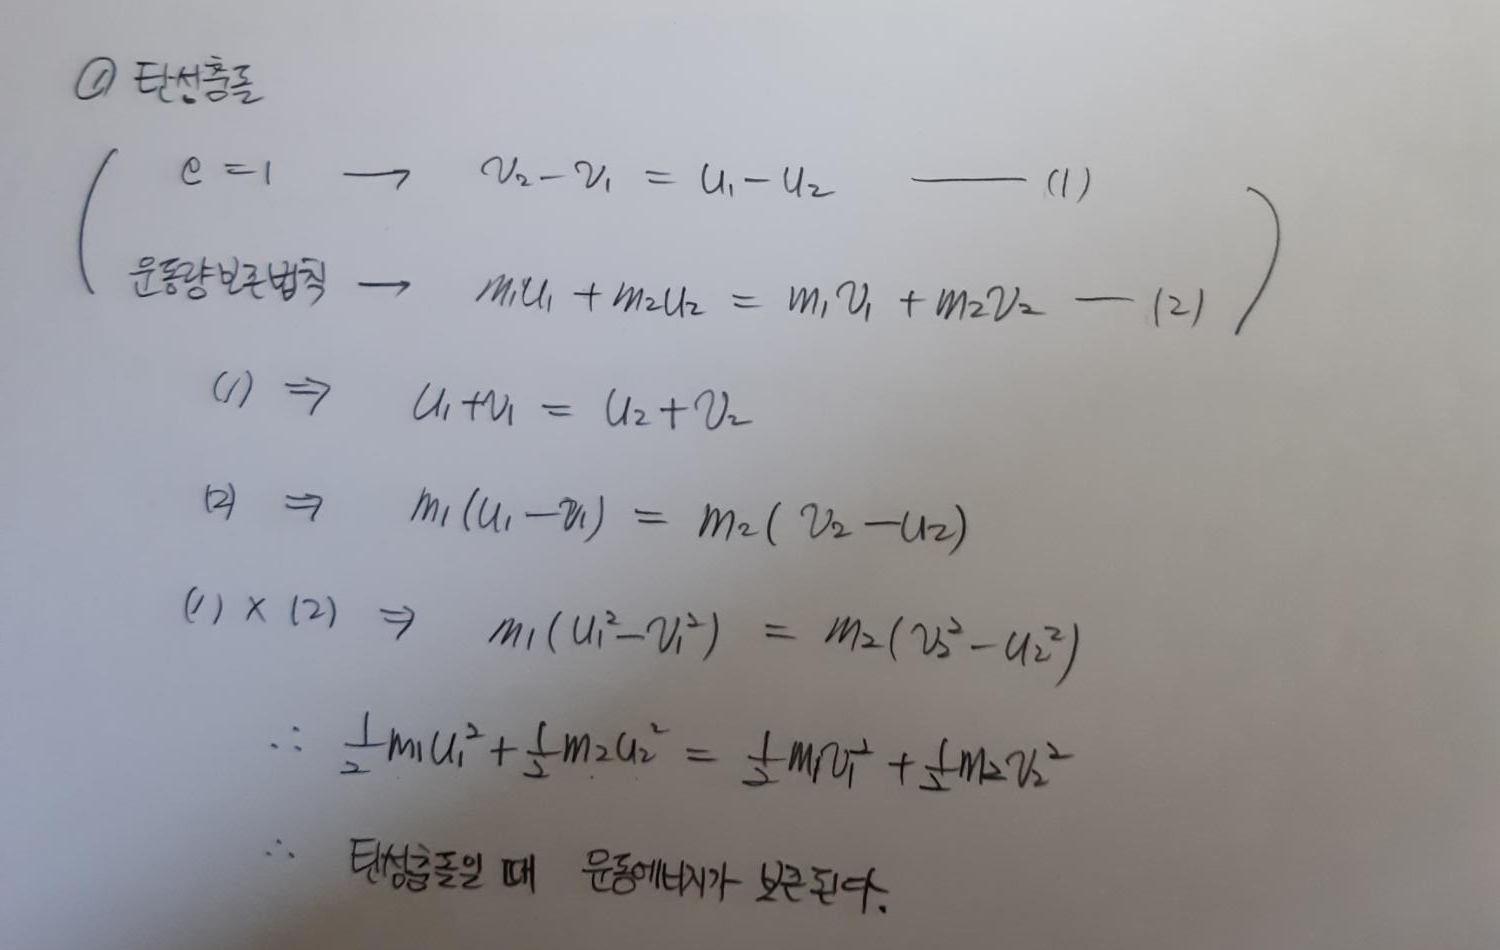 ① 탄성충돌
e = 1 → v₂ - v₁ = u₁ - u₂ — (1)
운동량보존법칙 → m₁u₁ + m₂u₂ = m₁v₁ + m₂v₂ — (2)
(1) ⇒ u₁ + v₁ = u₂ + v₂
(2) ⇒ m₁(u₁ - v₁) = m₂(v₂ - u₂)
(1) × (2) ⇒ m₁(u₁² - v₁²) = m₂(v₂² - u₂²)
∴ ½m₁u₁² + ½m₂u₂² = ½m₁v₁² + ½m₂v₂²
∴ 탄성충돌일 때 운동에너지가 보존된다.